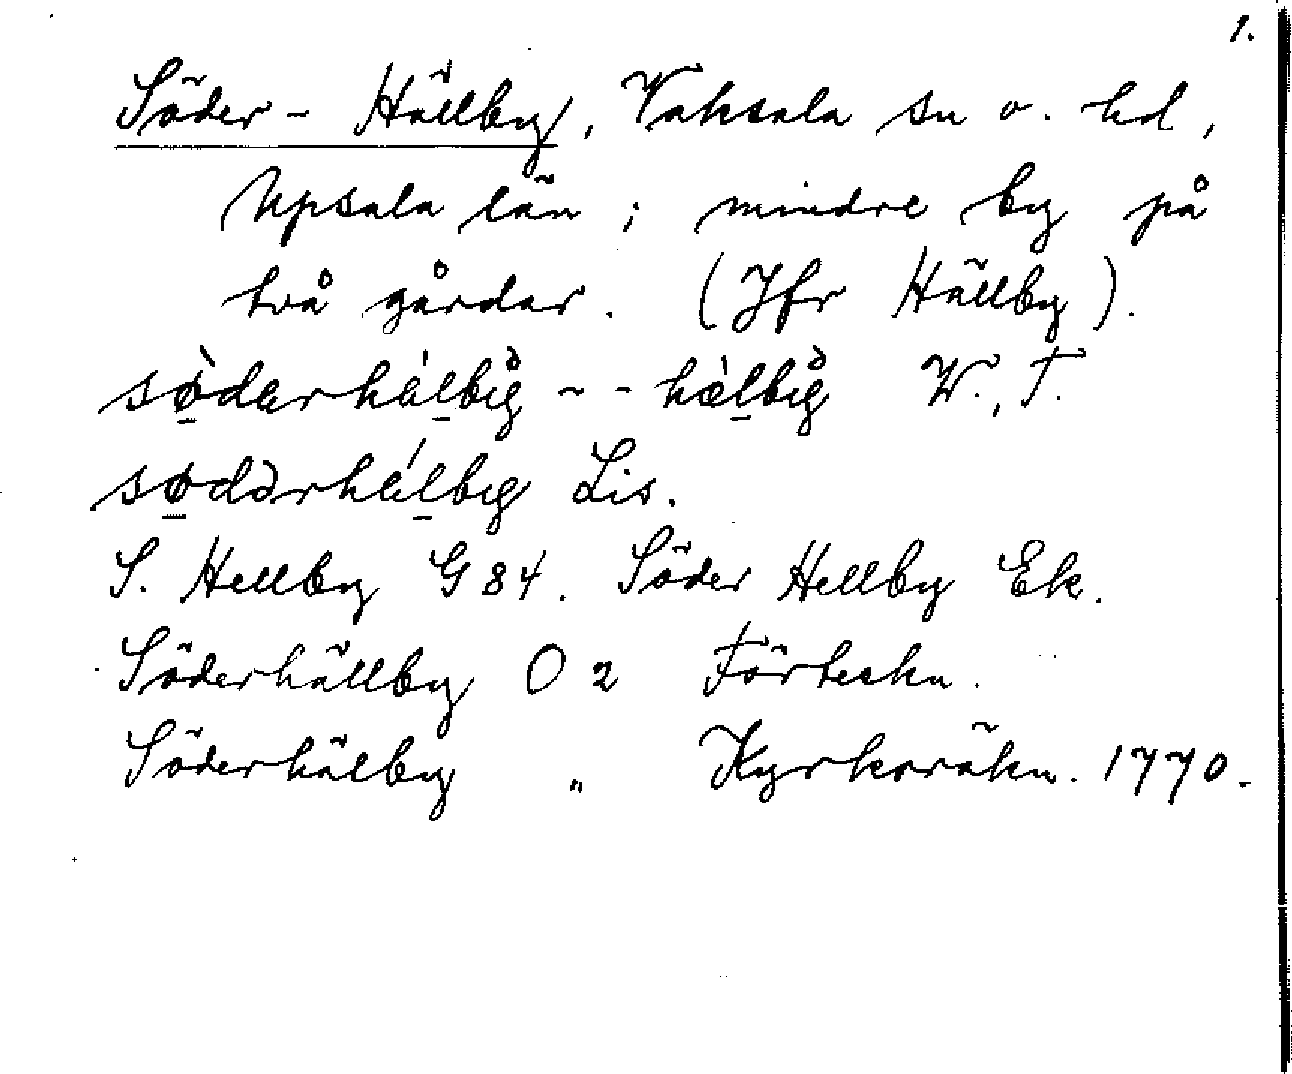 1.
Söder-Hällby, Vaksala sn o. hd,
Upsala län; mindre by på
två gårdar. (Jfr Hällby).
W., T.
Lis.
S. Hellby G 84. Söder Hellby Ek.
Söderhällby O 2 Förteckn.
Söderhälby „ Kyrkoräkn. 1770.